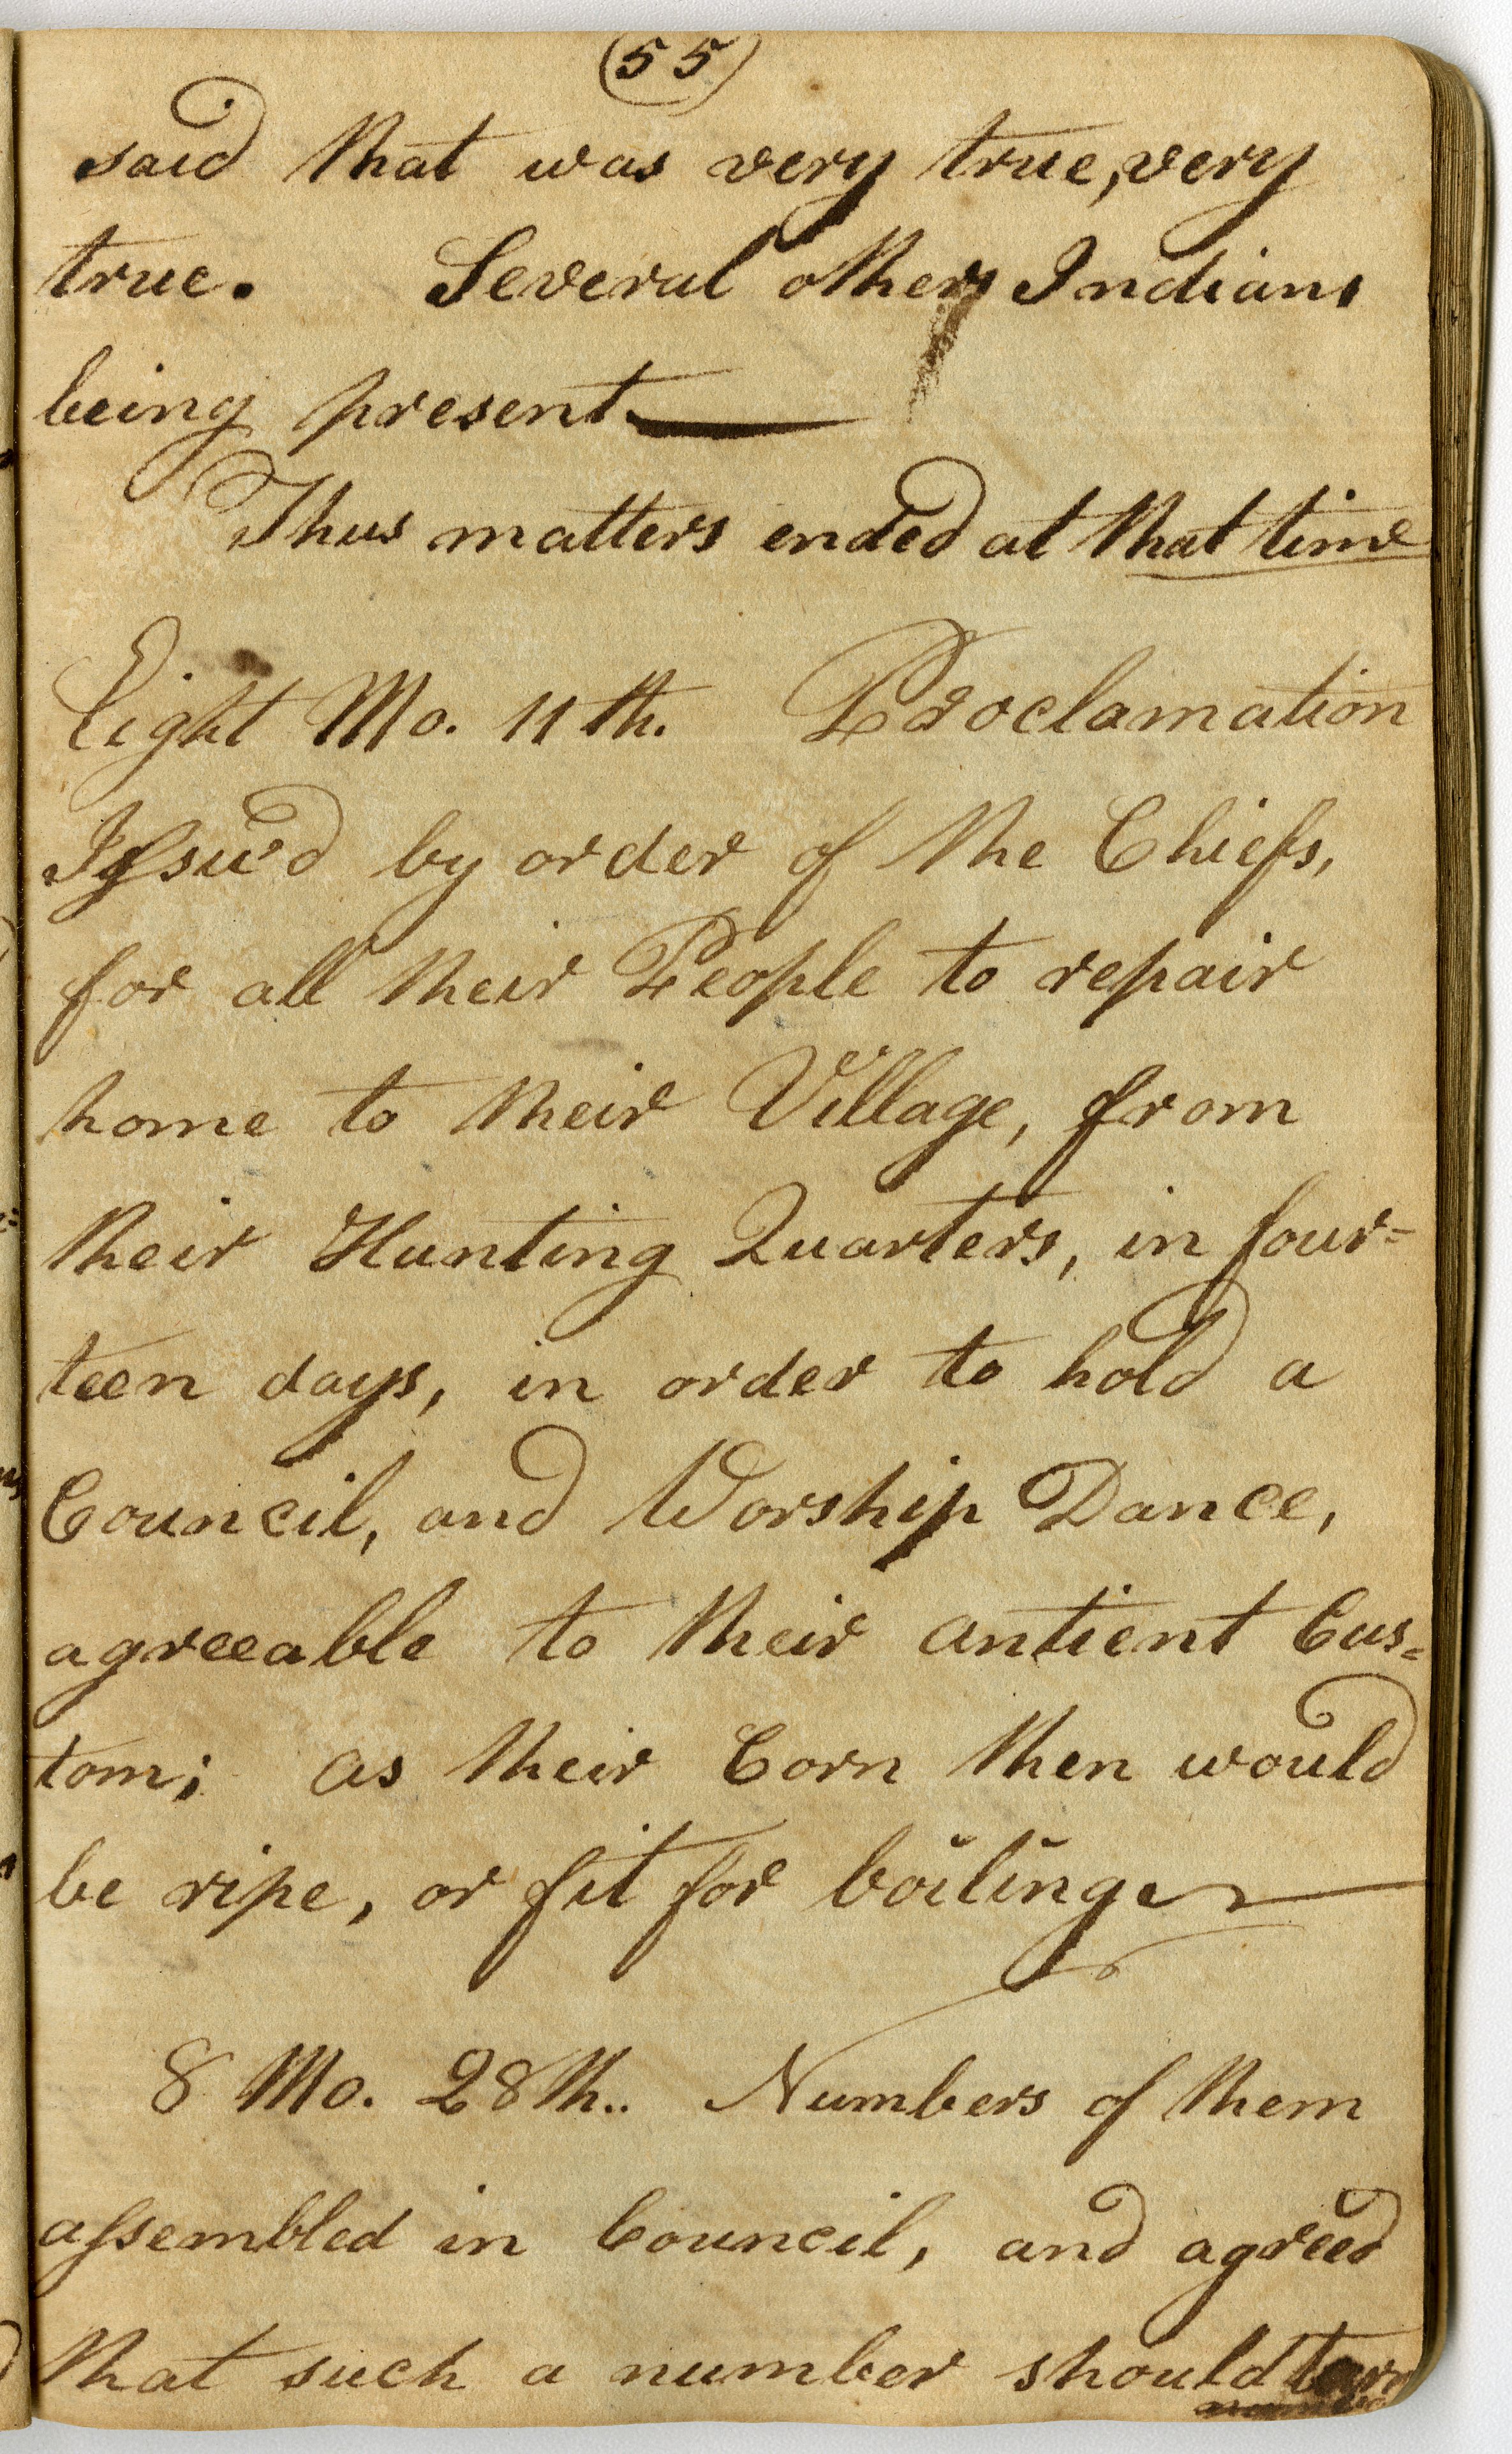 (55)
said that was very true, very
true. Several others Indians
being present.
Thus matters ended at that time
Eight Mo. 11th. Proclamation
Issu'd by order of the Chiefs,
for all their People to repair
home to their Village, from
their Hunting Quarters, in four=
teen days, in order to hold a
Council, and Worship Dance,
agreeable to their antient Cus=
tom; as their Corn then would
be ripe, or fit for boiling.
8 Mo. 28th.. Numbers of them
assembled in Council, and agreed
that such a number should turn